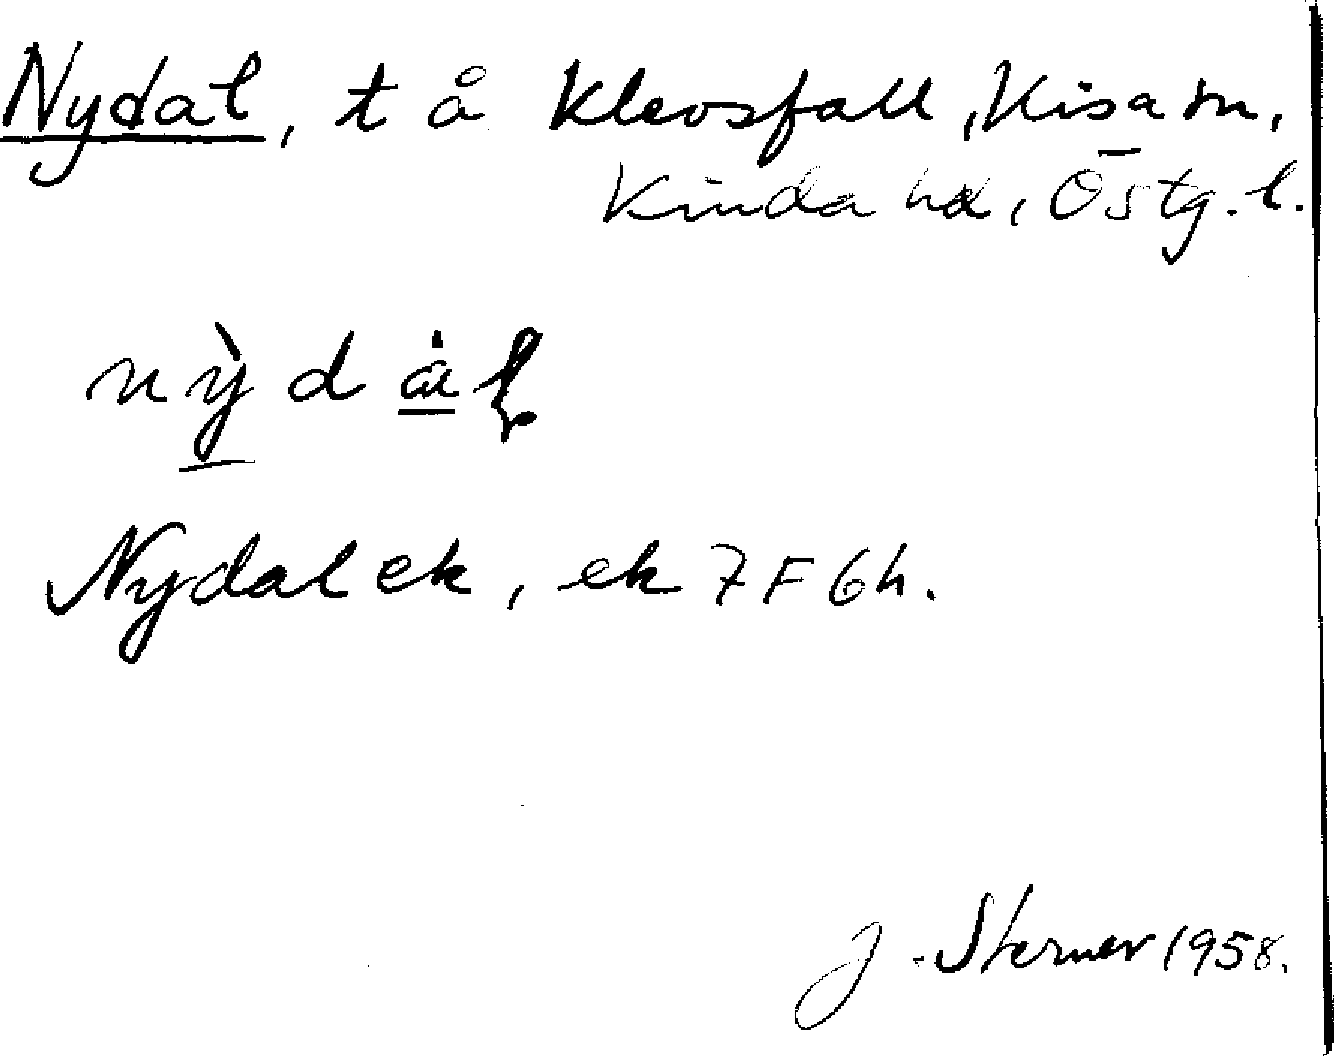 Nydal, t å Klevsfall, Kisa sn,
Kinda hd, Östg. l.
nỳdál
Nydal ek, ek 7F6h.
J. Sterner 1958.